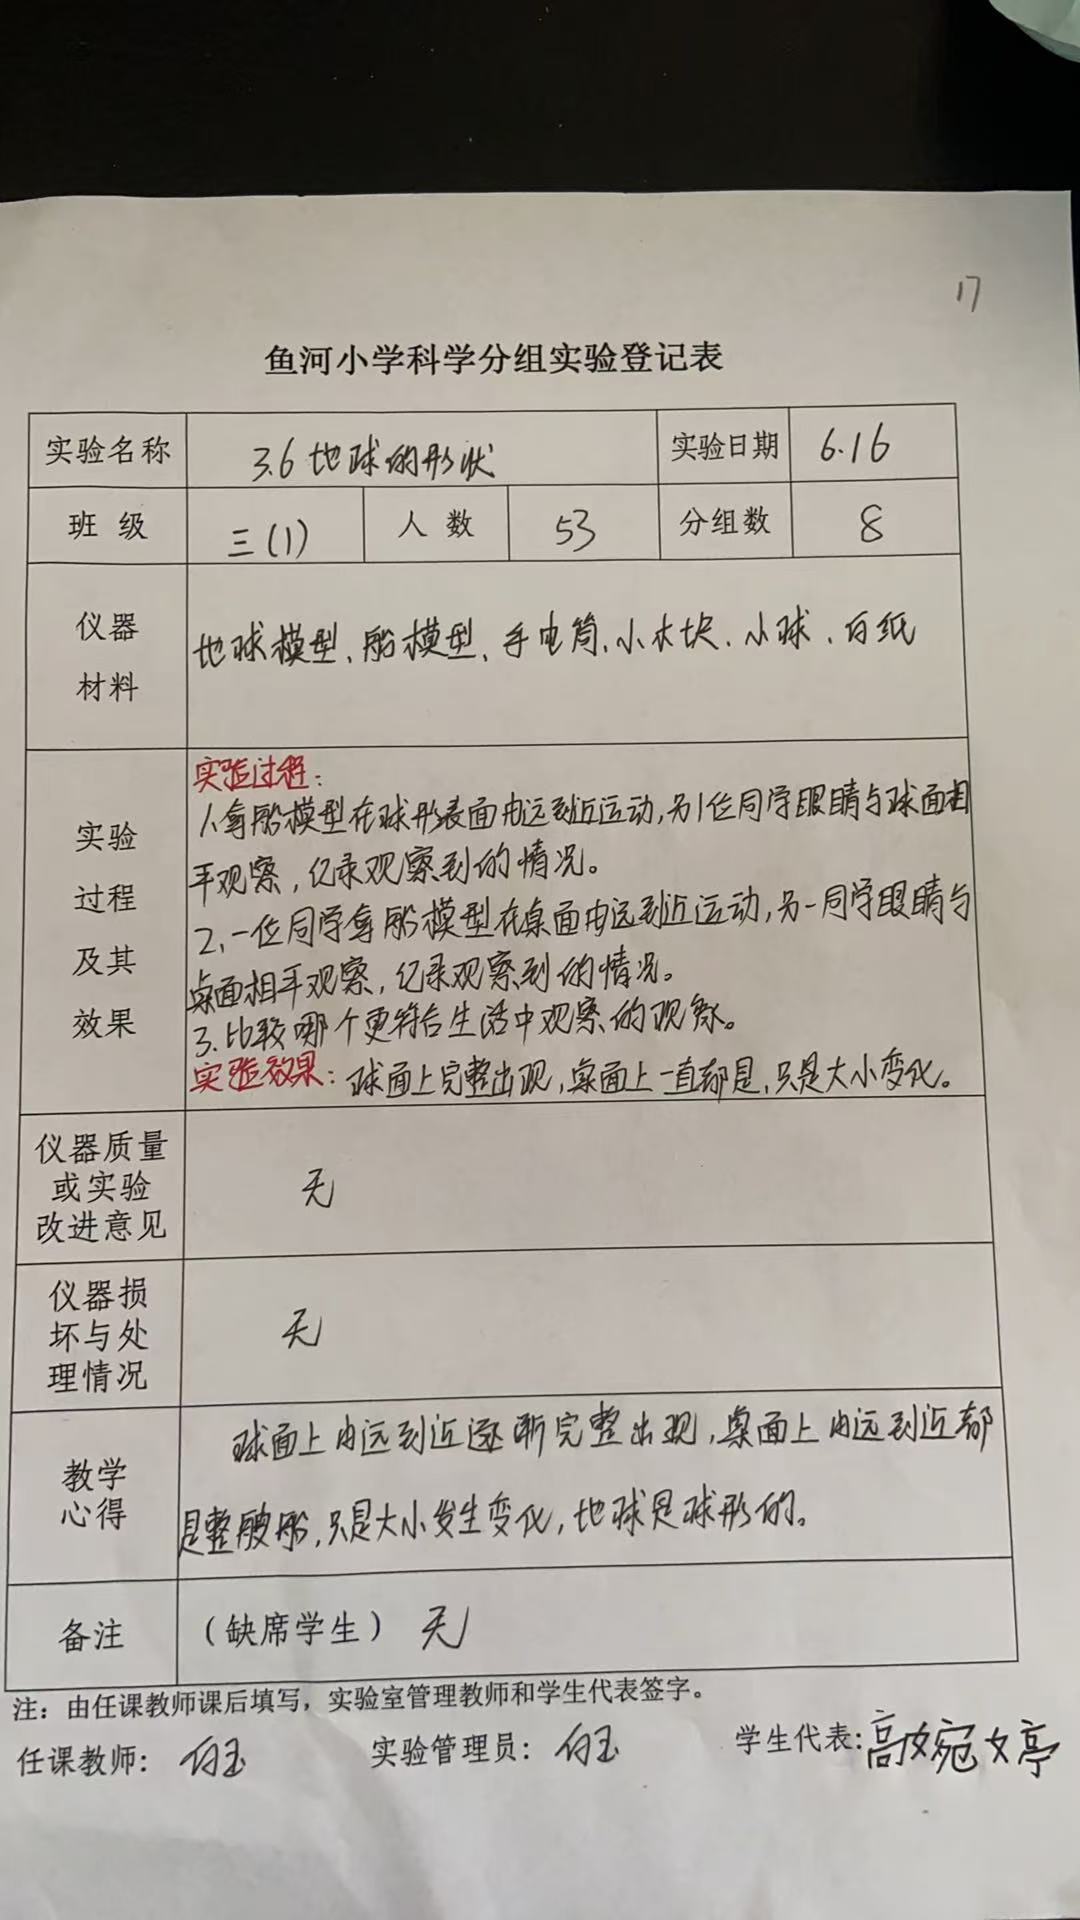 17
鱼河小学科学分组实验登记表
实验名称 3.6 地球的形状 实验日期 6.16
班 级 三(1) 人 数 53 分组数 8
仪器
材料
地球模型、船模型、手电筒、小木块、小球、白纸
实验
过程
及其
效果
实验过程:
1.拿船模型在球形表面由远到近运动,另1位同学眼睛与球面相
平观察,记录观察到的情况。
2.一位同学拿船模型在桌面由远到近运动,另一同学眼睛与
桌面相平观察,记录观察到的情况。
3.比较哪个更符合生活中观察的现象。
实验效果:球面上完整出现,桌面上一直都是,只是大小变化。
仪器质量
或实验
改进意见
无
仪器损
坏与处
理情况
无
教学
心得
球面上由远到近逐渐完整出现,桌面上由远到近都
是整艘船,只是大小发生变化,地球是球形的。
备注 (缺席学生) 无
注:由任课教师课后填写,实验室管理教师和学生代表签字。
任课教师: 白玉 实验管理员: 白玉 学生代表:高婉婷